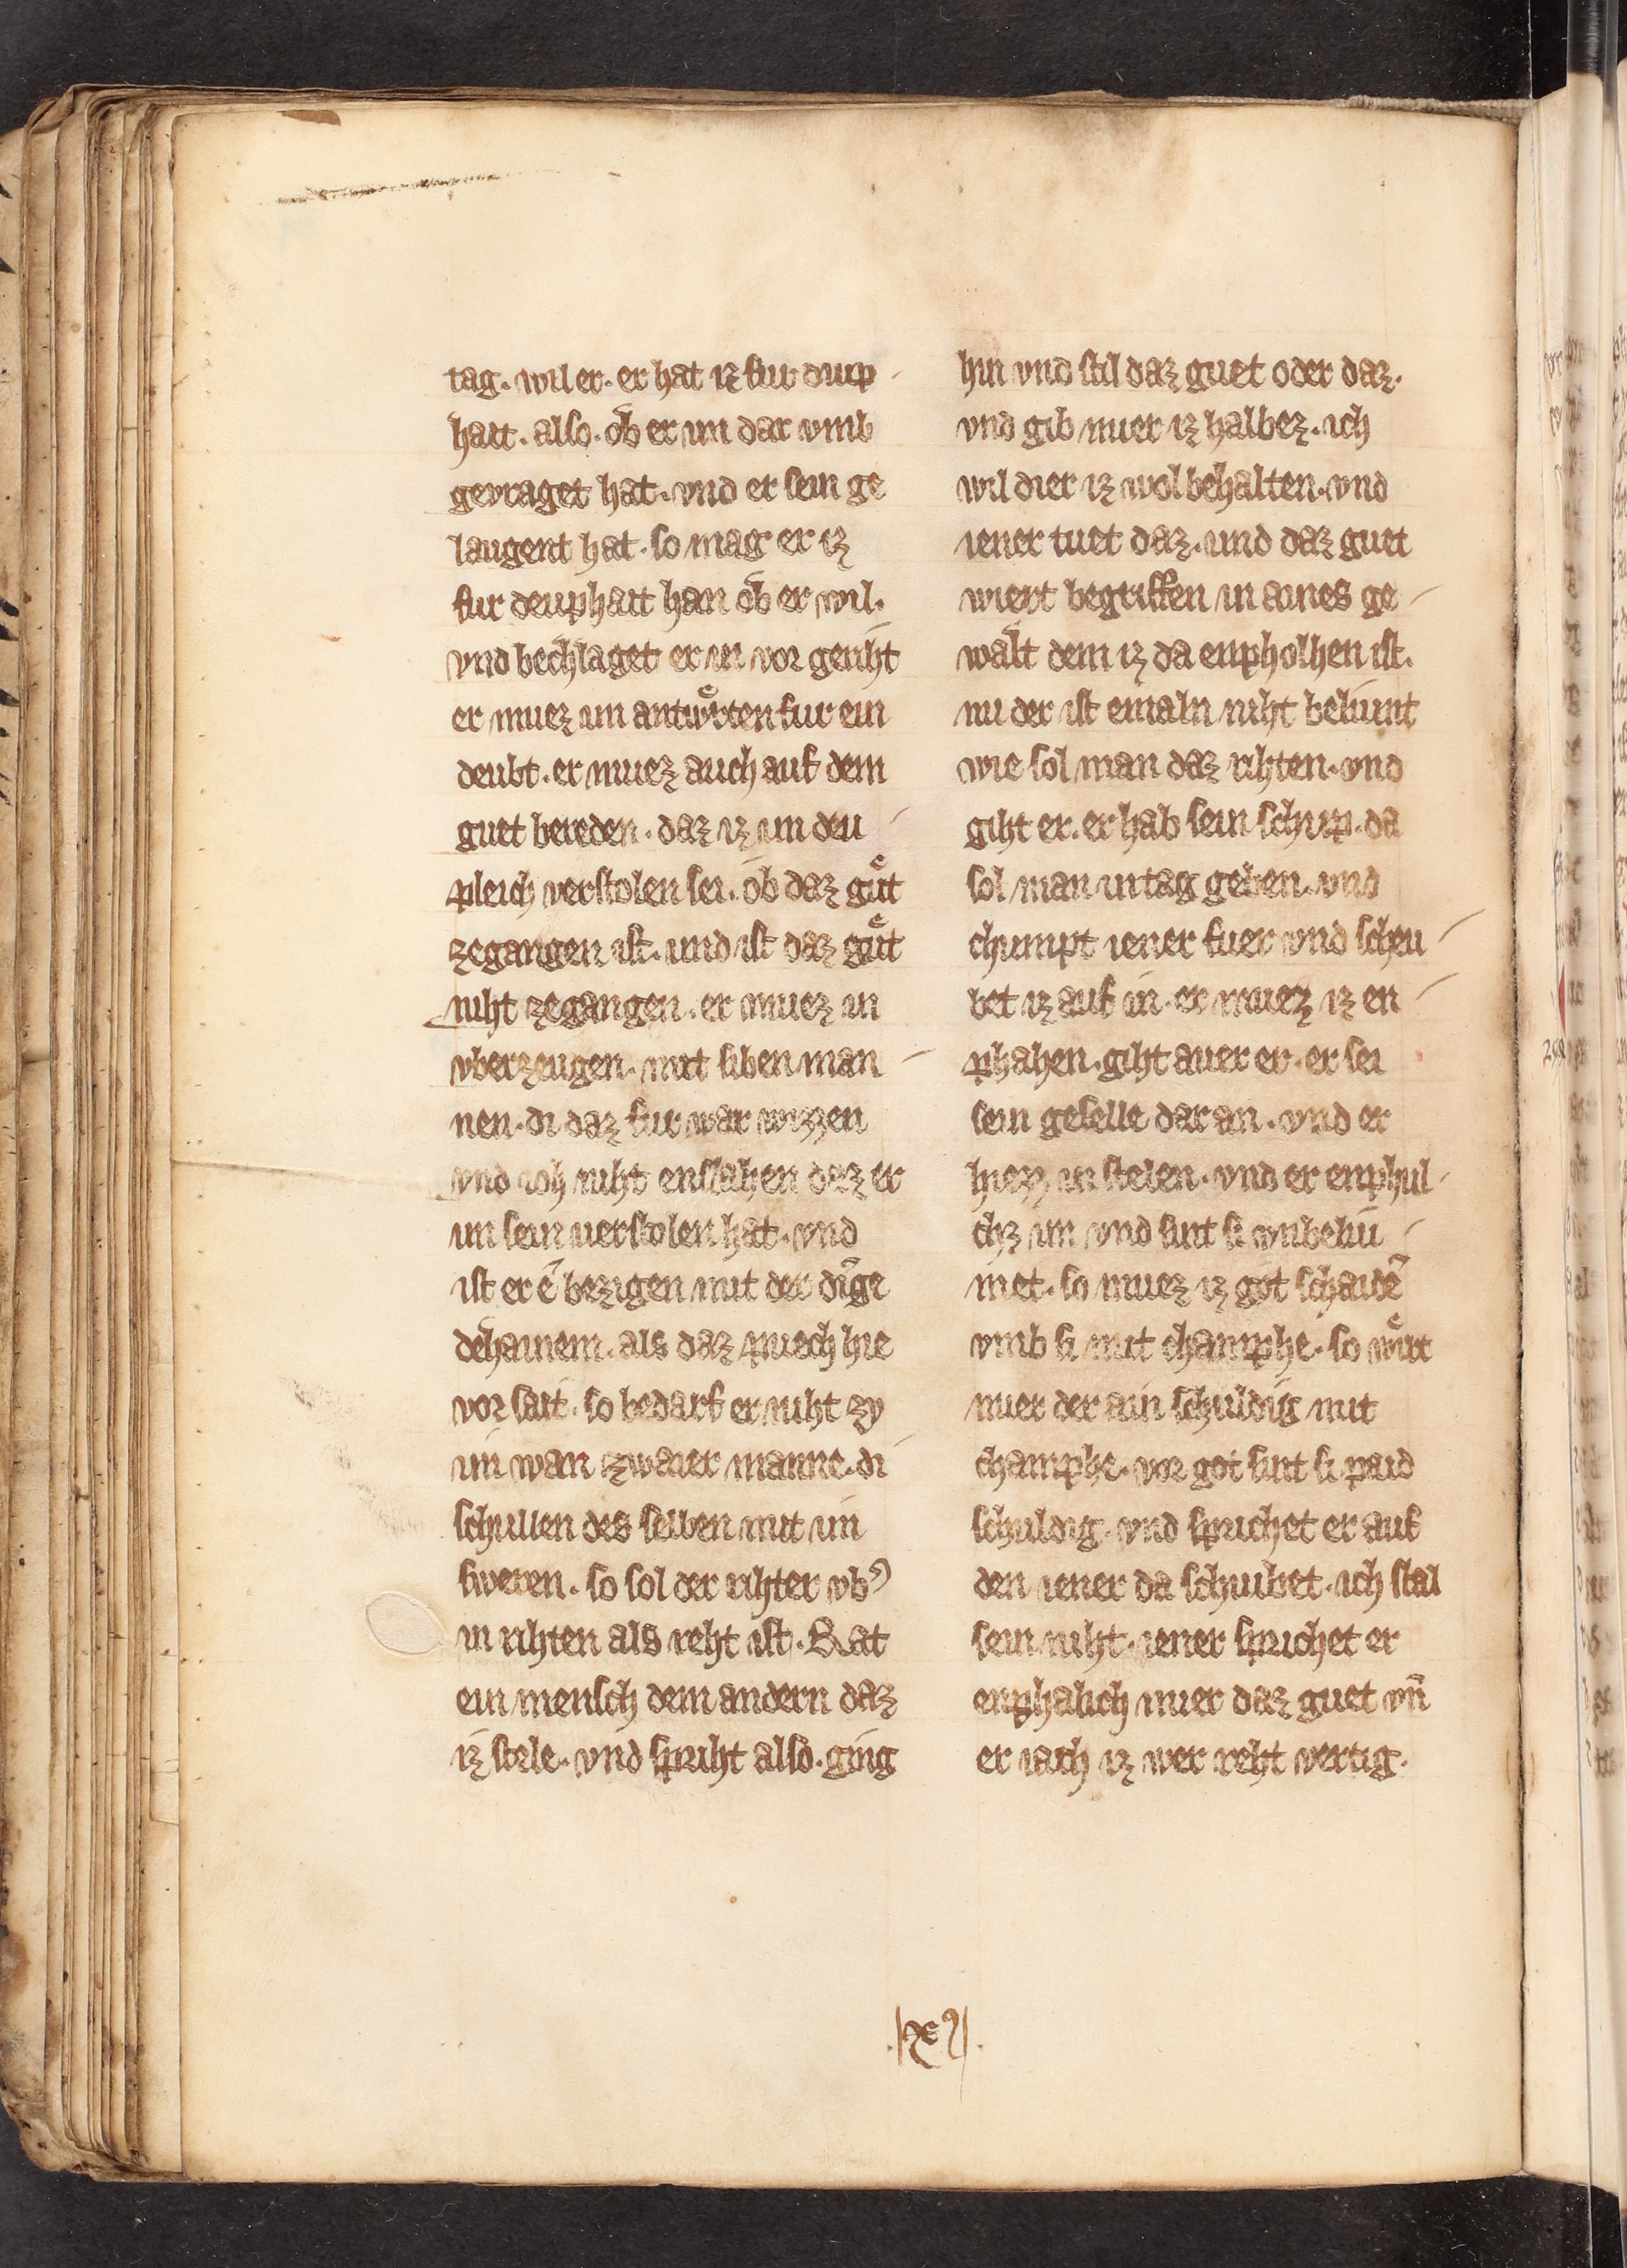 tag. wil er. er hat iz fur diup
hait. also. ob er im dar vmb
gevraget hat. vnd er sein ge
laugent hat. so mag er iz
fur deuphait han ob er wil.
vnd bechlaget er in vor geriht
er muez im antwͤrten fur ein
deubt. er muez auch auf dem
guet bereden. daz iz im deu
pleich verstolen sei. ob daz guͤt
zegangen ist. und ist daz guͤt
niht zegangen. er muez in
vberzeugen. mit siben man
nen. di daz fur war wizzen
vnd ioh niht enstahen daz er
im sein verstolen hat. vnd
ist er ē bezigen mit der dīge
dehainem. als daz puech hie
vor sait. so bedarf er niht zv
im wan zwaier manne. di
schullen des selben mit im
sweren. so sol der rihter vb᾽
in rihten als reht ist. Rat
ein mensch dem andern daz
iz stele. vnd spriht also. ging
hin vnd stil daz guet oder daz.
vnd gib mier iz halbez. ich
wil dier iz wol behalten. vnd
iener tuet daz. und daz guet
wiert begriffen in aines ge
walt dem iz da enpholhen ist.
nu der ist emaln niht beliunt
wie sol man daz rihten. vnd
giht er. er hab sein schup. da
sol man in tag geben. vnd
chumpt iener fuer vnd scheu
bet iz auf in. er muez iz en
phahen. giht auer er. er sei
sein geselle dar an. vnd er
hiezz in stelen. vnd er enphul
chz im vnd sint si vnbeliu
met. so muez iz got schaidē
vmb si mit champhe. so wͤirt
nuer der ain schuldig mit
champhe. vor got sint si paid
schuldig. vnd sprichet er auf
den iener da schubet. ich stal
sein niht. iener sprichet er
enphalich mier daz guet vn̄
er iach iz wer reht vertig.